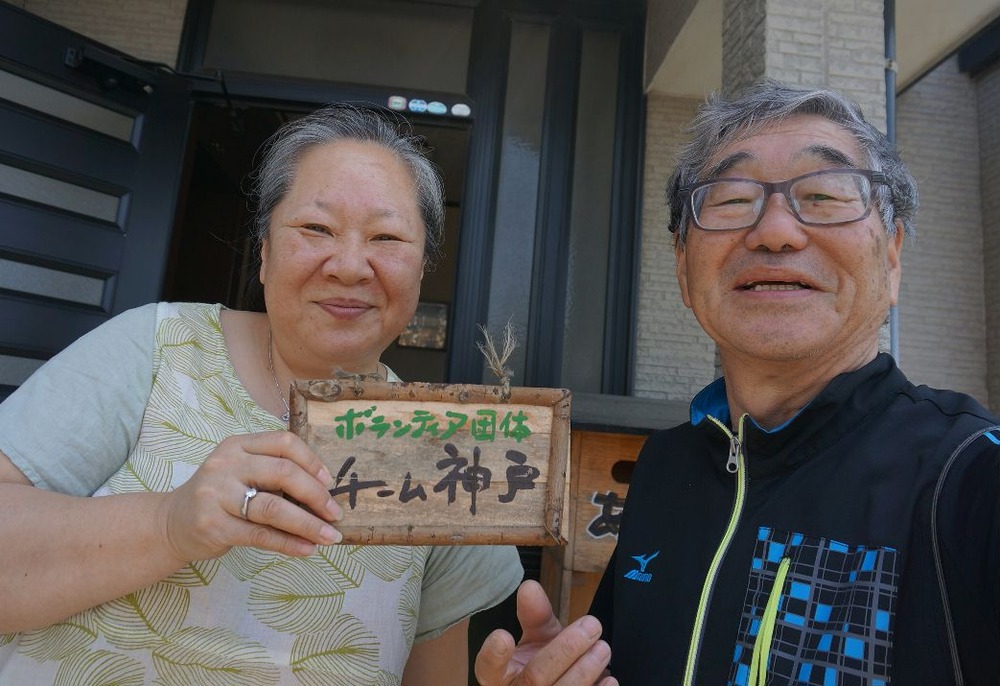 ボランティア団体
チーム神戸
あ
MIZUNO